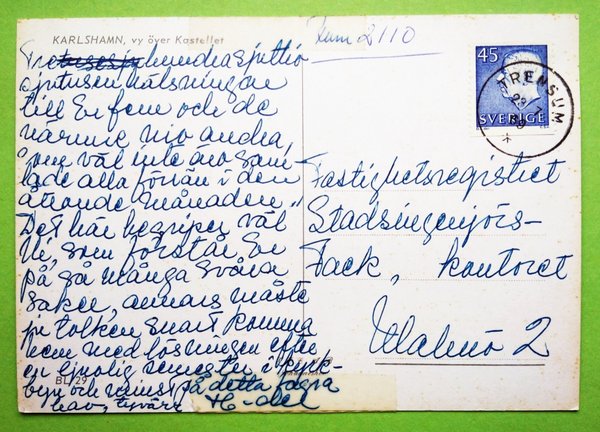 KARLSHAMN, vy över Kastellet
Rum 2110
45
SVERIGE
TRENSUM
Tretusensjuhundrasjuttio-
sjutusen hälsningar
till Er fem och de
närmre nio andra,
som väl inte äro sam-
lade alla förrän i den
åttonde månaden."
Det här begriper väl
Ni, som förstår Er
på så många svåra
saker, annars måste
ju tolken snart komma
hem med lösningen efter
en ljuvlig semester i
byn och vid
på detta fagra
hav, tyvärr
BL/29
Fastighetsregistret
Stadsingenjörs-
Fack, kontoret
Malmö 2